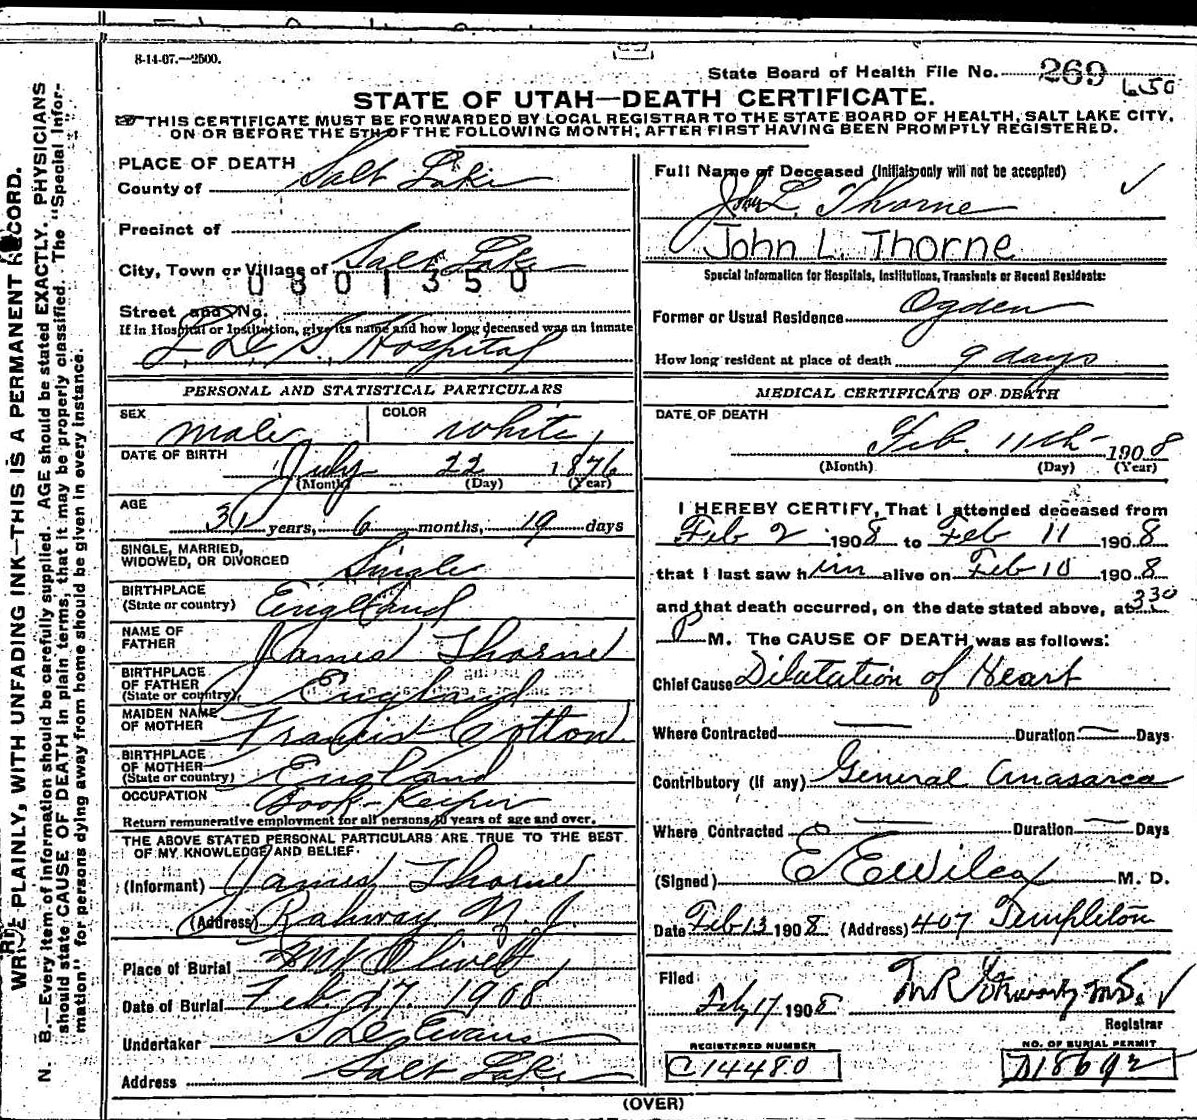 8-14-07.—2500.
State Board of Health File No. 269 650
STATE OF UTAH—DEATH CERTIFICATE.
THIS CERTIFICATE MUST BE FORWARDED BY LOCAL REGISTRAR TO THE STATE BOARD OF HEALTH, SALT LAKE CITY,
ON OR BEFORE THE 5TH OF THE FOLLOWING MONTH, AFTER FIRST HAVING BEEN PROMPTLY REGISTERED.
PLACE OF DEATH
County of Salt Lake
Precinct of
City, Town or Village of Salt Lake
0801350
Street and No.
If in Hospital or Institution, give its name and how long deceased was an inmate
L. D. S. Hospital
PERSONAL AND STATISTICAL PARTICULARS
SEX Male COLOR White
DATE OF BIRTH July 22 1876
(Month) (Day) (Year)
AGE 31 years, 6 months, 19 days
SINGLE, MARRIED,
WIDOWED, OR DIVORCED Single
BIRTHPLACE
(State or country) England
NAME OF
FATHER James Thorne
BIRTHPLACE
OF FATHER
(State or country) England
MAIDEN NAME
OF MOTHER Francis Cotton
BIRTHPLACE
OF MOTHER
(State or country) England
OCCUPATION Book-Keeper
Return remunerative employment for all persons 10 years of age and over.
THE ABOVE STATED PERSONAL PARTICULARS ARE TRUE TO THE BEST
OF MY KNOWLEDGE AND BELIEF.
(Informant) James Thorne
(Address) Rahway N. J.
Place of Burial Mt Olivett
Date of Burial Feb 17, 1908
Undertaker Evans
Address Salt Lake
Full Name of Deceased (Initials only will not be accepted)
John L. Thorne
John L. Thorne
Special Information for Hospitals, Institutions, Transients or Recent Residents:
Former or Usual Residence Ogden
How long resident at place of death 9 days
MEDICAL CERTIFICATE OF DEATH
DATE OF DEATH
Feb. 11th 1908
(Month) (Day) (Year)
I HEREBY CERTIFY, That I attended deceased from
Feb 2 1908 to Feb 11 1908
that I last saw him alive on Feb 10 1908
and that death occurred, on the date stated above, at 330
P M. The CAUSE OF DEATH was as follows:
Chief Cause Dilatation of Heart
Where Contracted — Duration — Days
Contributory (if any) General Anasarca
Where Contracted — Duration — Days
(Signed) E E Wilcox M. D.
Date Feb 13 1908 (Address) 407 Templeton
Filed
Feby 17 1908
Registrar
REGISTERED NUMBER
C 14480
NO. OF BURIAL PERMIT
D18692
(OVER)
WRITE PLAINLY, WITH UNFADING INK—THIS IS A PERMANENT RECORD.
N. B.—Every item of information should be carefully supplied. AGE should be stated EXACTLY. PHYSICIANS
should state CAUSE OF DEATH in plain terms, that it may be properly classified. The "Special Infor-
mation" for persons dying away from home should be given in every instance.